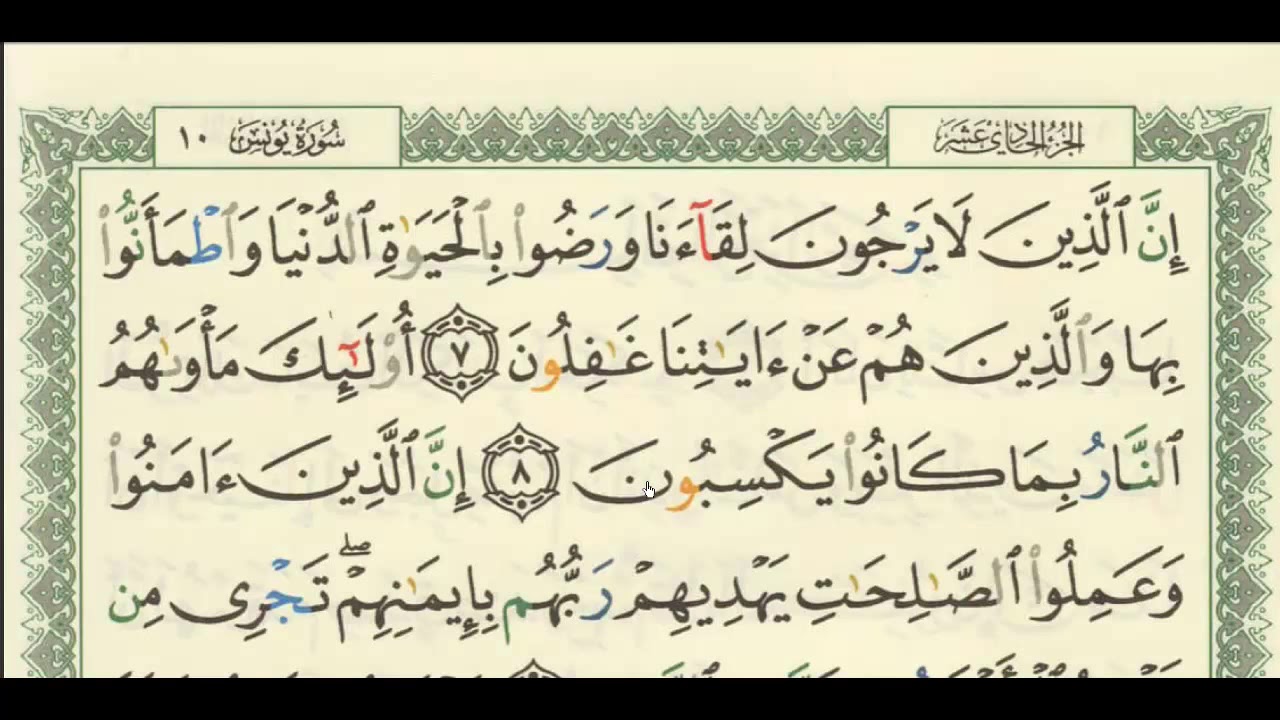 الجزء الحادي عشر
سورة يونس ١٠
إِنَّ ٱلَّذِينَ لَا يَرْجُونَ لِقَآءَنَا وَرَضُوا۟ بِٱلْحَيَوٰةِ ٱلدُّنْيَا وَٱطْمَأَنُّوا۟
بِهَا وَٱلَّذِينَ هُمْ عَنْ ءَايَـٰتِنَا غَـٰفِلُونَ ٧ أُو۟لَـٰٓئِكَ مَأْوَىٰهُمُ
ٱلنَّارُ بِمَا كَانُوا۟ يَكْسِبُونَ ٨ إِنَّ ٱلَّذِينَ ءَامَنُوا۟
وَعَمِلُوا۟ ٱلصَّـٰلِحَـٰتِ يَهْدِيهِمْ رَبُّهُم بِإِيمَـٰنِهِمْ ۖ تَجْرِى مِن